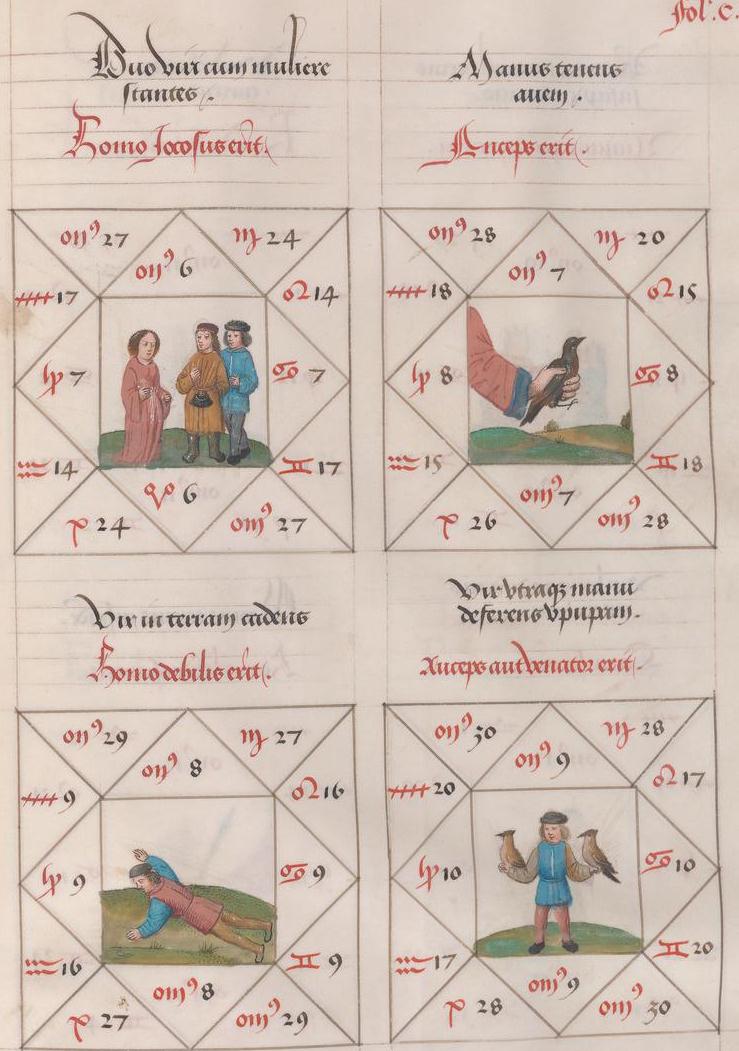 Fol. C.
Duo viri cum muliere
stantes.
Homo Jocosus erit.
27
6
24
17
14
7
7
14
17
6
24
27
Manus tenens
avem.
Auceps erit.
28
7
20
18
15
8
8
15
18
7
26
28
Vir in terram cadens
Homo debilis erit.
29
8
27
9
16
9
9
16
9
8
27
29
Vir vtraqꝫ manu
deferens vpupam.
Auceps aut venator erit.
30
9
28
20
17
10
10
17
20
9
28
30